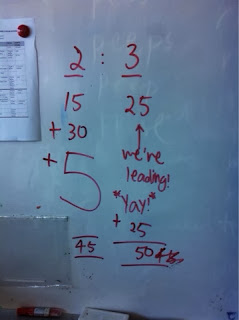 2 : 3
15 25
+ 30
+ 5
we're
leading!
"Yay!"
+ 25
45 50